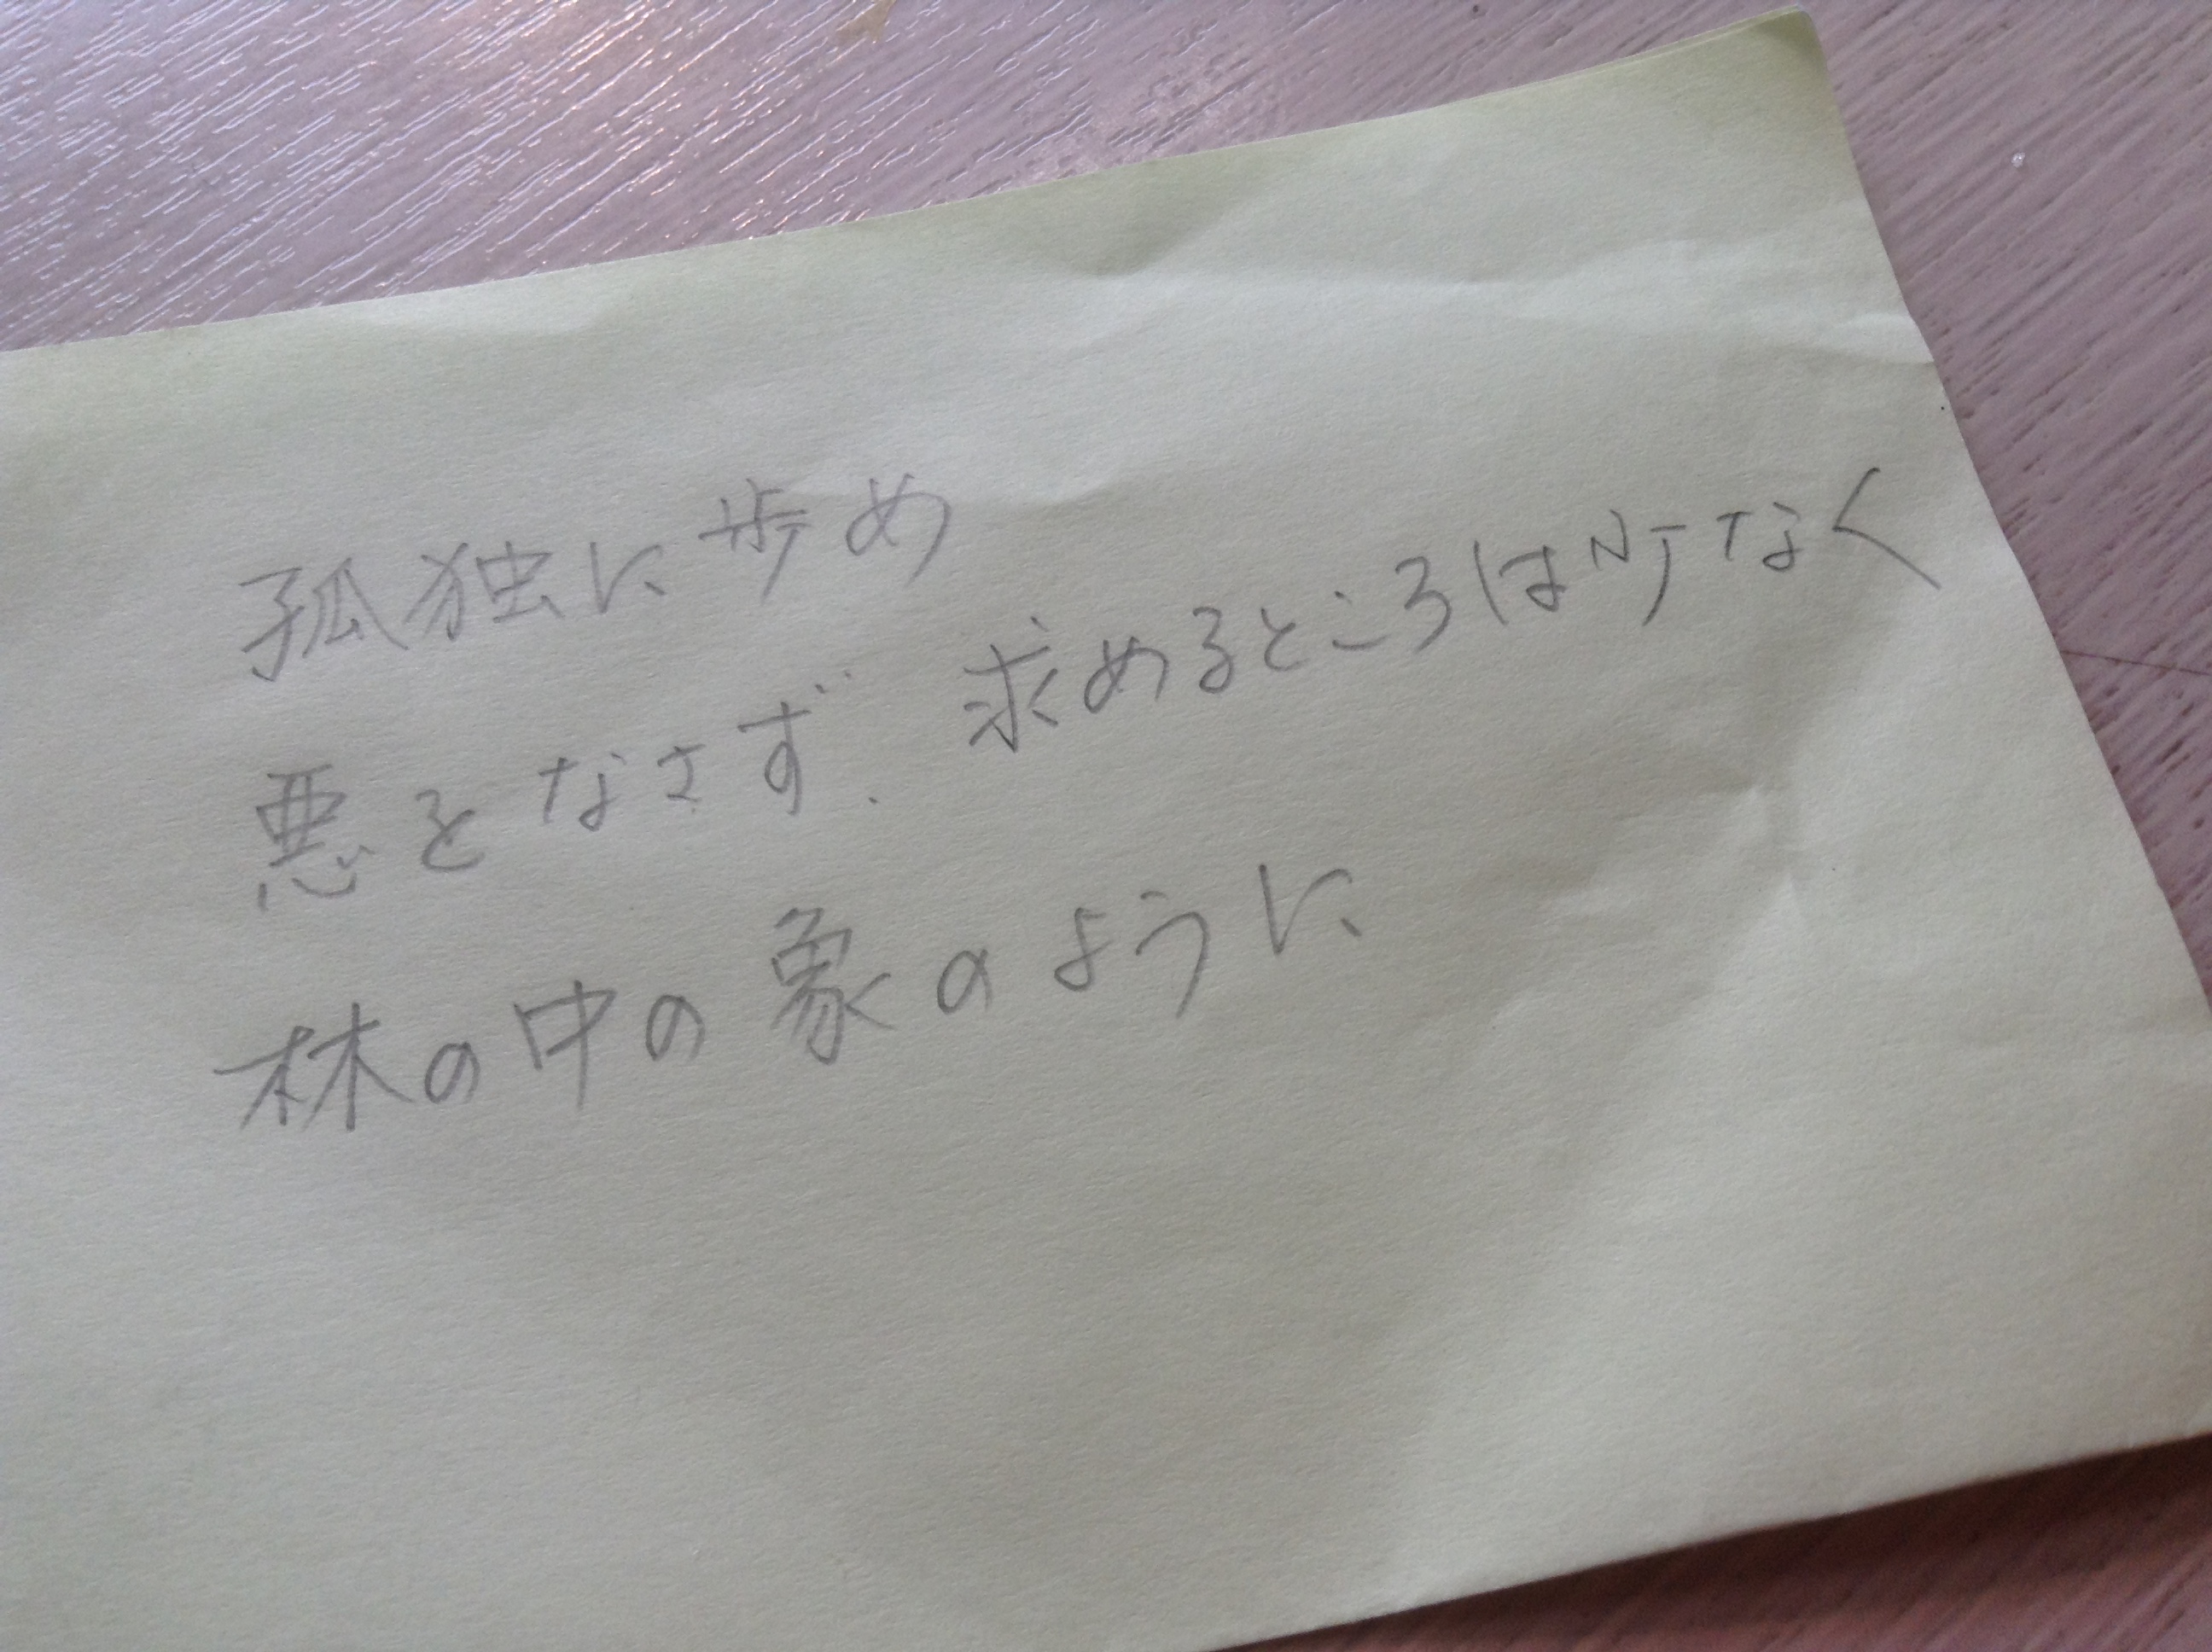 孤独に歩め
悪をなさず、求めるところは少なく
林の中の象のように